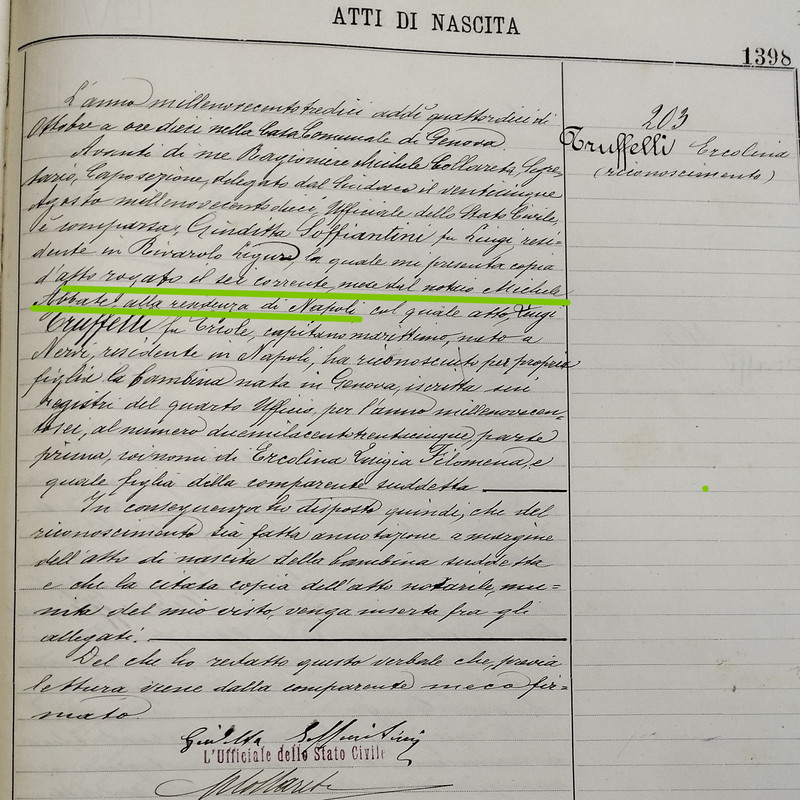 ATTI DI NASCITA
1398
203
Truffelli Ercolina
(riconoscimento)
L'anno millenovecentotredici addì quattordici di
Ottobre a ore dieci nella Casa Comunale di Genova.
Avanti di me Ragioniere Michele Collareta, Segre
tario, Caposezione, delegato dal Sindaco il venticinque
Agosto millenovecentodieci, Ufficiale dello Stato Civile,
è comparsa, Giuditta Soffiantini fu Luigi, resi=
dente in Rivarolo Ligure, la quale mi presenta copia
d'atto rogato il sei corrente mese dal notaio Michele
Abbate alla residenza di Napoli col quale atto, Luigi
Truffelli fu Ercole, capitano marittimo, nato a
residente in Napoli, ha riconosciuto per propria
figlia la bambina nata in Genova, iscritta sui
registri del quarto Ufficio, per l'anno millenovecen=
tosei, al numero duemilacentotrentacinque, parte
prima, coi nomi di Ercolina Luigia Filomena, e
quale figlia della comparente suddetta
In conseguenza ho disposto quindi, che del
riconoscimento sia fatta annotazione a margine
dell'atto di nascita della bambina suddetta
e che la citata copia dell'atto notarile, mu=
nita del mio visto, venga inserta fra gli
allegati.
Del che ho redatto questo verbale che, previa
lettura viene dalla comparente meco fir=
mato.
Giuditta Soffiantini
L'Ufficiale dello Stato Civile